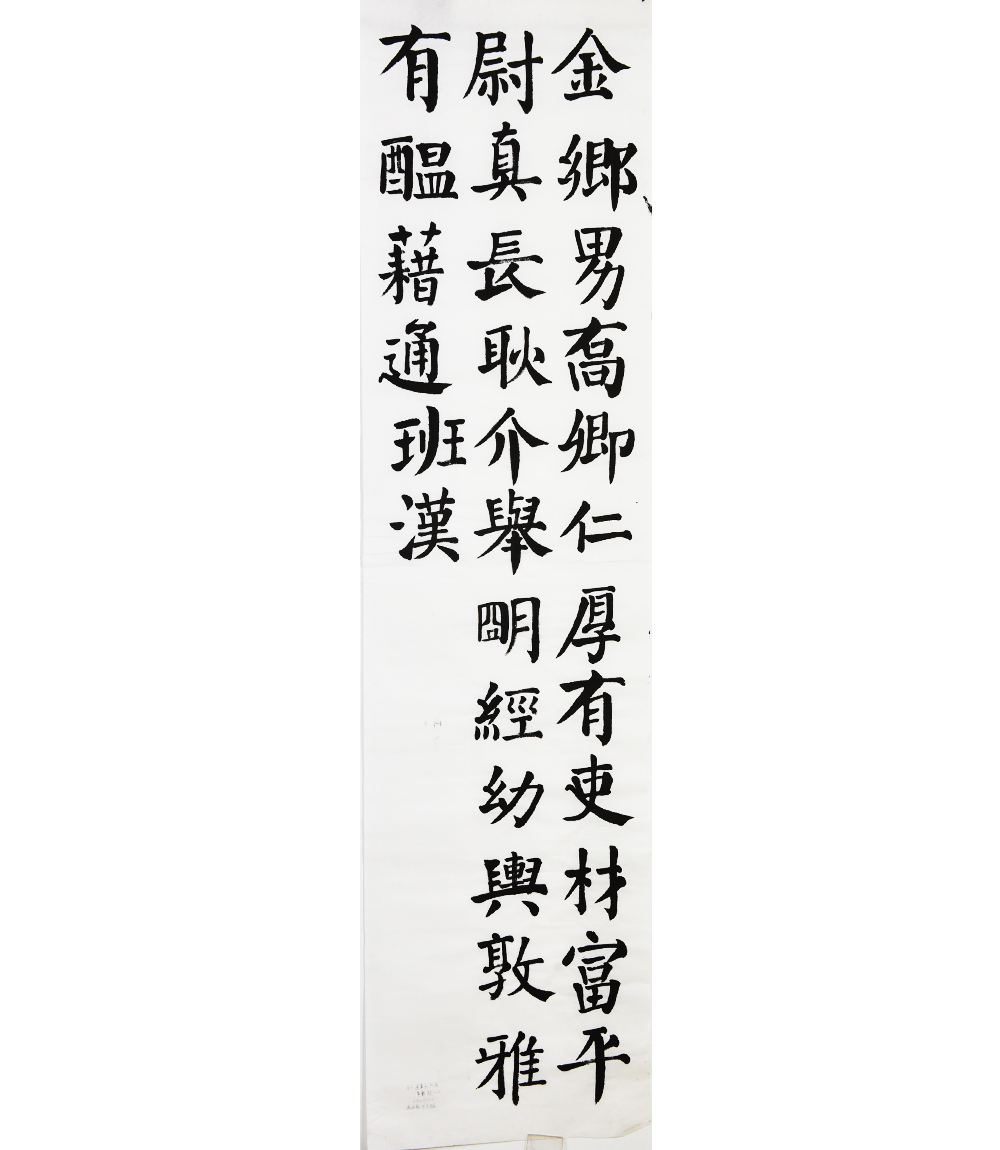 金鄉男㕿卿仁厚有吏材富平
尉真長耿介舉朙經幼輿敦雅
有醖藉通班漢